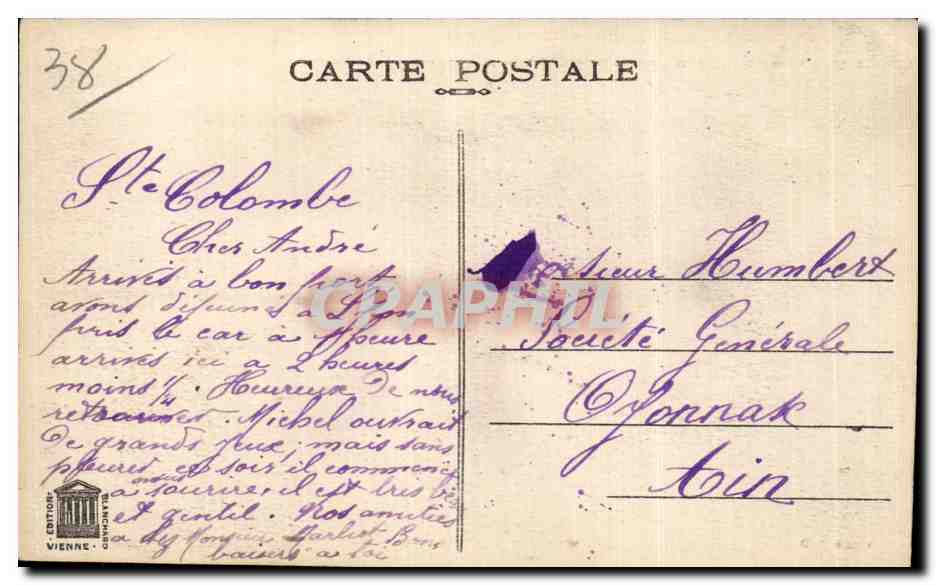 38
CARTE POSTALE
Ste Colombe
Cher André
Arrivés à bon port
avons déjeuné à Lyon
pris le car à 1 heure
arrivés ici à 2 heures
moins 1/4. Heureux de nous
retrouver. Michel ouvrait
de grands yeux, mais sans
pleurer ce soir il commence
à nous sourire, il est très
et gentil. Nos amitiés
à Monsieur
baisers à toi
Monsieur Humbert
Société Générale
Oyonnak
Ain
EDITION BLANCHARD
VIENNE
CPAPHIL